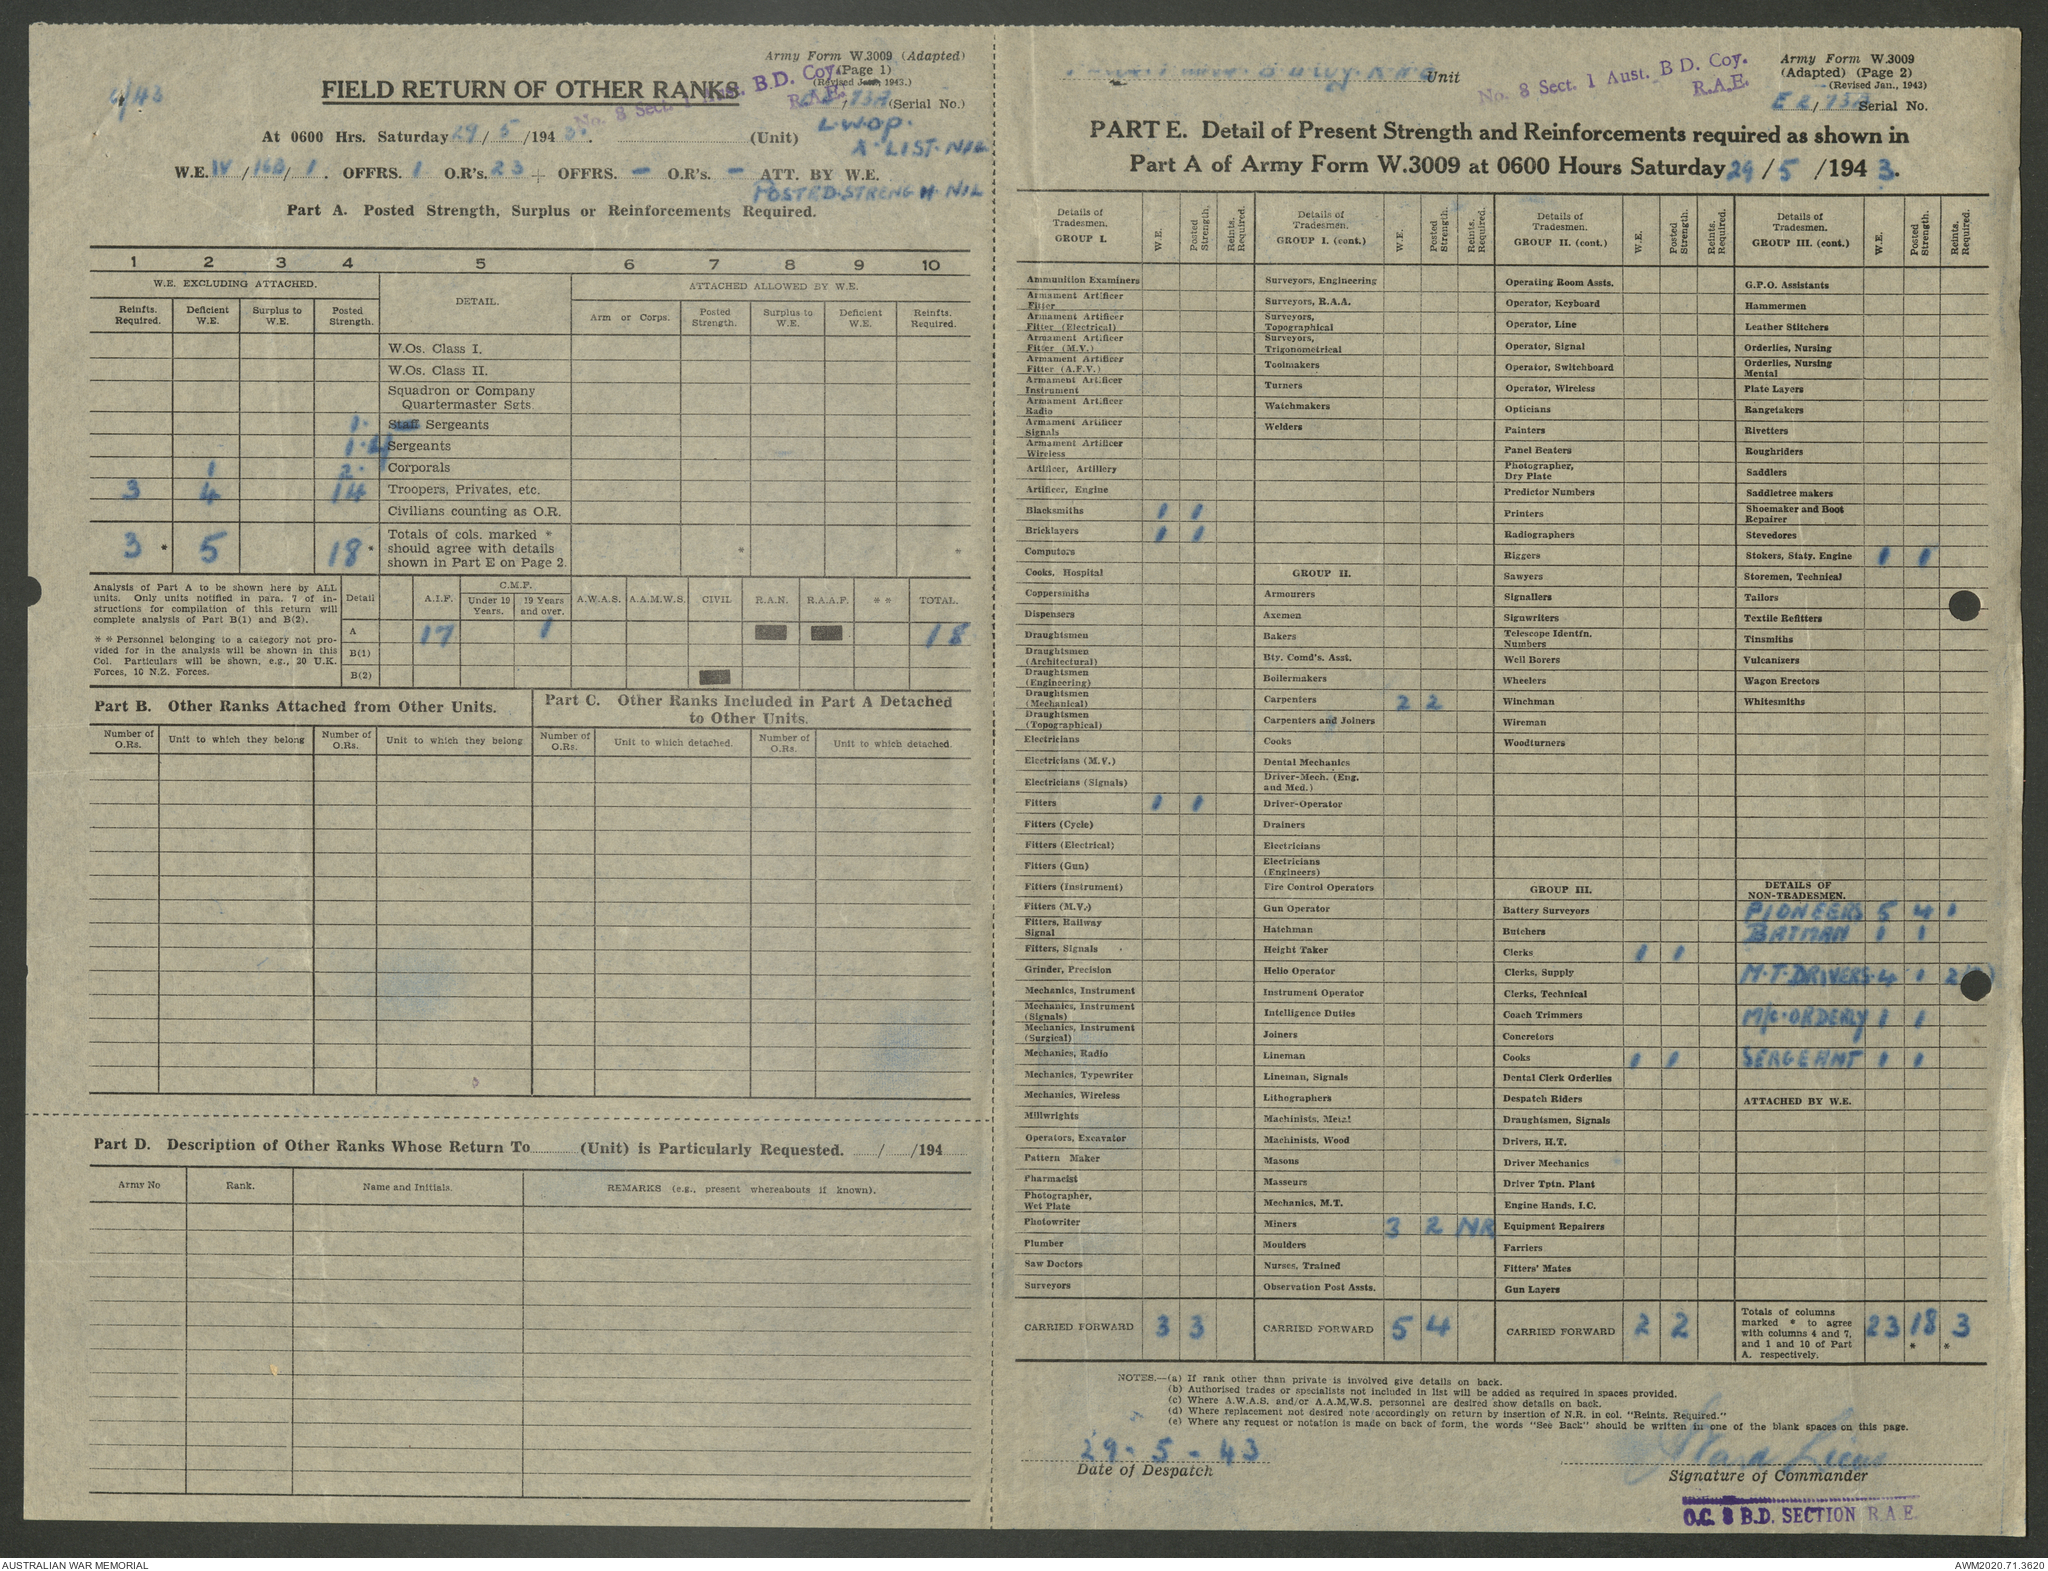 Army Form W.3009 (Adapted)
(Page 1)
(Revised Jan., 1943.)
/43
FIELD RETURN OF OTHER RANKS
No. 8 Sect. 1 Aust. B.D. Coy.
R.A.E.
(Serial No.)
At 0600 Hrs. Saturday 29/5/1943. (Unit)
L.W.O.P.
A. LIST. NIL
W.E. IV/16B/1. OFFRS. 1 O.R's. 23 + OFFRS. — O.R's. — ATT. BY W.E.
POSTED. STRENGTH. NIL
Part A. Posted Strength, Surplus or Reinforcements Required.
1 2 3 4 5 6 7 8 9 10
W.E. EXCLUDING ATTACHED. DETAIL. ATTACHED ALLOWED BY W.E.
Reinfts. Required. Deficient W.E. Surplus to W.E. Posted Strength. Arm or Corps. Posted Strength. Surplus to W.E. Deficient W.E. Reinfts. Required.
W.Os. Class I.
W.Os. Class II.
Squadron or Company
Quartermaster Sgts.
1. Staff Sergeants
1. Sergeants
1 2. Corporals
3 4 14 Troopers, Privates, etc.
Civilians counting as O.R.
3 * 5 18 * Totals of cols. marked * should agree with details shown in Part E on Page 2. * *
Analysis of Part A to be shown here by ALL
units. Only units notified in para. 7 of in-
structions for compilation of this return will
complete analysis of Part B(1) and B(2).
* * Personnel belonging to a category not pro-
vided for in the analysis will be shown in this
Col. Particulars will be shown, e.g., 20 U.K.
Forces, 10 N.Z. Forces.
Detail A.I.F. C.M.F. Under 19 Years. 19 Years and over. A.W.A.S. A.A.M.W.S. CIVIL R.A.N. R.A.A.F. * * TOTAL.
A 17 1 18
B(1)
B(2)
Part B. Other Ranks Attached from Other Units.
Part C. Other Ranks Included in Part A Detached
to Other Units.
Number of O.Rs. Unit to which they belong Number of O.Rs. Unit to which they belong Number of O.Rs. Unit to which detached. Number of O.Rs. Unit to which detached.
Part D. Description of Other Ranks Whose Return To (Unit) is Particularly Requested. / /194
Army No Rank. Name and Initials. REMARKS (e.g., present whereabouts if known).
Unit
No. 8 Sect. 1 Aust. B.D. Coy.
R.A.E.
Army Form W.3009
(Adapted) (Page 2)
(Revised Jan., 1943)
Serial No.
PART E. Detail of Present Strength and Reinforcements required as shown in
Part A of Army Form W.3009 at 0600 Hours Saturday 29/5/1943.
Details of Tradesmen. GROUP I. W.E. Posted Strength. Reints. Required.
Ammunition Examiners
Armament Artificer Fitter
Armament Artificer Fitter (Electrical)
Armament Artificer Fitter (M.V.)
Armament Artificer Fitter (A.F.V.)
Armament Artificer Instrument
Armament Artificer Radio
Armament Artificer Signals
Armament Artificer Wireless
Artificer, Artillery
Artificer, Engine
Blacksmiths 1 1
Bricklayers 1 1
Computors
Cooks, Hospital
Coppersmiths
Dispensers
Draughtsmen
Draughtsmen (Architectural)
Draughtsmen (Engineering)
Draughtsmen (Mechanical)
Draughtsmen (Topographical)
Electricians
Electricians (M.V.)
Electricians (Signals)
Fitters 1 1
Fitters (Cycle)
Fitters (Electrical)
Fitters (Gun)
Fitters (Instrument)
Fitters (M.V.)
Fitters, Railway Signal
Fitters, Signals
Grinder, Precision
Mechanics, Instrument
Mechanics, Instrument (Signals)
Mechanics, Instrument (Surgical)
Mechanics, Radio
Mechanics, Typewriter
Mechanics, Wireless
Millwrights
Operators, Excavator
Pattern Maker
Pharmacist
Photographer, Wet Plate
Photowriter
Plumber
Saw Doctors
Surveyors
CARRIED FORWARD 3 3
Details of Tradesmen. GROUP I. (cont.) W.E. Posted Strength. Reints. Required.
Surveyors, Engineering
Surveyors, R.A.A.
Surveyors, Topographical
Surveyors, Trigonometrical
Toolmakers
Turners
Watchmakers
Welders
GROUP II.
Armourers
Axemen
Bakers
Bty. Comd's. Asst.
Boilermakers
Carpenters 2 2
Carpenters and Joiners
Cooks
Dental Mechanics
Driver-Mech. (Eng. and Med.)
Driver-Operator
Drainers
Electricians
Electricians (Engineers)
Fire Control Operators
Gun Operator
Hatchman
Height Taker
Helio Operator
Instrument Operator
Intelligence Duties
Joiners
Lineman
Lineman, Signals
Lithographers
Machinists, Metal
Machinists, Wood
Masons
Masseurs
Mechanics, M.T.
Miners 3 2 NR
Moulders
Nurses, Trained
Observation Post Assts.
CARRIED FORWARD 5 4
Details of Tradesmen. GROUP II. (cont.) W.E. Posted Strength. Reints. Required.
Operating Room Assts.
Operator, Keyboard
Operator, Line
Operator, Signal
Operator, Switchboard
Operator, Wireless
Opticians
Painters
Panel Beaters
Photographer, Dry Plate
Predictor Numbers
Printers
Radiographers
Riggers
Sawyers
Signallers
Signwriters
Telescope Identfn. Numbers
Well Borers
Wheelers
Winchman
Wireman
Woodturners
GROUP III.
Battery Surveyors
Butchers
Clerks 1 1
Clerks, Supply
Clerks, Technical
Coach Trimmers
Concretors
Cooks 1 1
Dental Clerk Orderlies
Despatch Riders
Draughtsmen, Signals
Drivers, H.T.
Driver Mechanics
Driver Tptn. Plant
Engine Hands, I.C.
Equipment Repairers
Farriers
Fitters' Mates
Gun Layers
CARRIED FORWARD 2 2
Details of Tradesmen. GROUP III. (cont.) W.E. Posted Strength. Reints. Required.
G.P.O. Assistants
Hammermen
Leather Stitchers
Orderlies, Nursing
Orderlies, Nursing Mental
Plate Layers
Rangetakers
Rivetters
Roughriders
Saddlers
Saddletree makers
Shoemaker and Boot Repairer
Stevedores
Stokers, Staty. Engine 1 1
Storemen, Technical
Tailors
Textile Refitters
Tinsmiths
Vulcanizers
Wagon Erectors
Whitesmiths
DETAILS OF NON-TRADESMEN.
PIONEERS 5 4 1
BATMAN 1 1
M.T. DRIVERS. 4 1 2
M/C. ORDERLY 1 1
SERGEANT 1 1
ATTACHED BY W.E.
Totals of columns marked * to agree with columns 4 and 7, and 1 and 10 of Part A. respectively. 23 18 * 3 *
NOTES.—(a) If rank other than private is involved give details on back.
(b) Authorised trades or specialists not included in list will be added as required in spaces provided.
(c) Where A.W.A.S. and/or A.A.M.W.S. personnel are desired show details on back.
(d) Where replacement not desired note accordingly on return by insertion of N.R. in col. "Reints. Required."
(e) Where any request or notation is made on back of form, the words "See Back" should be written in one of the blank spaces on this page.
29-5-43
Date of Despatch
Signature of Commander
O.C. 8 B.D. SECTION R.A.E.
AUSTRALIAN WAR MEMORIAL
AWM2020.71.3620